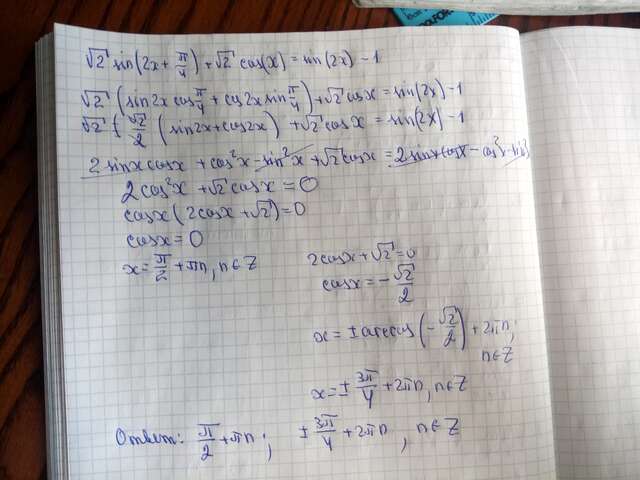 √2 sin(2x + π/4) + √2 cos(x) = sin(2x) - 1
√2 (sin2x cos π/4 + cos2x sin π/4) + √2 cosx = sin(2x) - 1
√2 ( √2/2 (sin2x + cos2x) + √2 cosx = sin(2x) - 1
2 sinx cosx + cos²x - sin²x + √2 cosx = 2 sinx cosx - cos²x - sin²x
2cos²x + √2 cosx = 0
cosx (2cosx + √2) = 0
cosx = 0
x = π/2 + πn, n∈Z
2cosx + √2 = 0
cosx = - √2/2
x = ± arccos (- √2/2) + 2πn;
n∈Z
x = ± 3π/4 + 2πn, n∈Z
Ответ: π/2 + πn; ± 3π/4 + 2πn, n∈Z